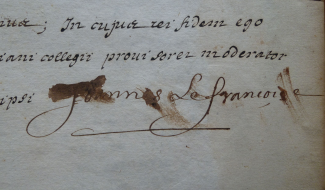 ; In cujus rei fidem ego
collegii provisor et moderator
Joannes Le françois